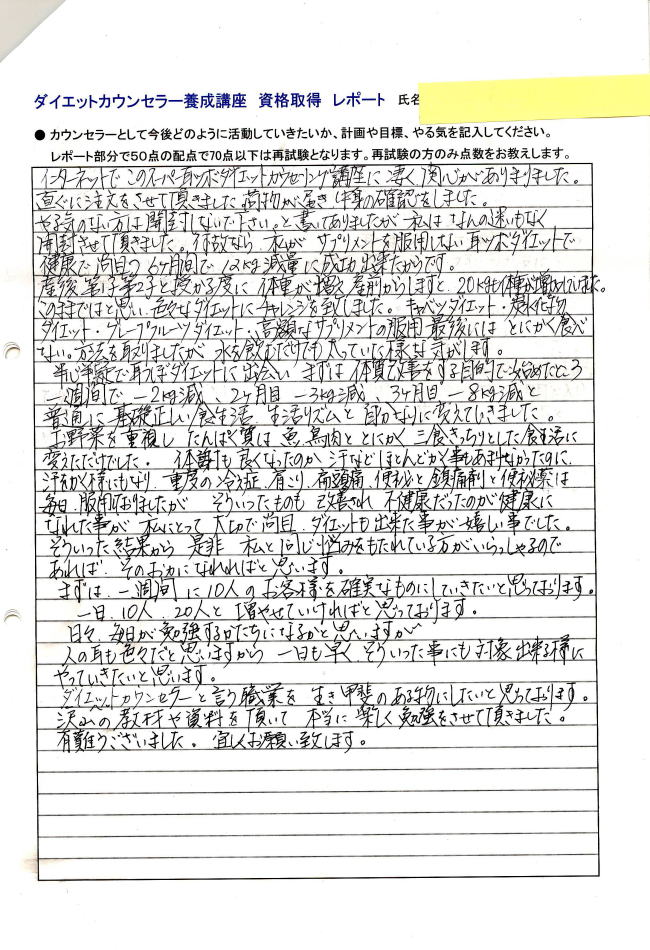 ダイエットカウンセラー養成講座 資格取得 レポート 氏名
● カウンセラーとして今後どのように活動していきたいか、計画や目標、やる気を記入してください。
レポート部分で50点の配点で70点以下は再試験となります。再試験の方のみ点数をお教えします。
インターネットでこのスーパー耳ツボダイエットカウセリング講座に凄く関心がありまりました。
直ぐに注文をさせて頂きました荷物が届き中身の確認をしました。
やる気のない方は開封しないで下さい。と書いてありましたが私はなんの迷いもなく
開封させて頂きました。何故なら私がサプリメントを服用しない耳ツボダイエットで
健康で尚且つ6ヶ月間で12kg減量に成功出来たからです。
産後第1子第2子と授かる度に体重が増え産前からしますと、20kgも体重が増加していました。
このままではと思い色々なダイエットにチャレンジを致しました。キャベツダイエット・炭水化物
ダイエット・グレープフルーツダイエット・高額なサプリメントの服用最後にはとにかく食べ
ない。方法を取りましたが水を飲むだけでも太っていた様な気がします。
半信半疑で耳つぼダイエットに出会いまずは体質改善をする目的で始めたところ
一週間で−2kg減、2ヶ月目−3kg減、3ヶ月目−8kg減と
普通に基礎正しい食生活、生活リズムと自分なりに考えていきました。
お野菜を重視したんぱく質は魚、鳥肉とにかく三食きっちりとした食生活に
変えただけでした。体調も良くなったのか汗などほとんどかく事もあまりなかったのに、
汗をかく様にもなり、重度の冷え症、肩こり、偏頭痛、便秘と鎮痛剤と便秘薬は
毎日、服用しておりましたがそういったものも改善され不健康だったのが健康に
なれた事が私にとって大切で尚且、ダイエットも出来た事が一番嬉しい事でした。
そういった結果から是非私と同じ悩みをもたれている方がいらっしゃるので
あれば、そのお力になれればと思います。
まずは、一週間に10人のお客様を確実なものにしていきたいと思っております。
一日、10人、20人と増やせていければと思っております。
日々、毎日が勉強するかたちになるかと思いますが
人の耳も色々だと思いますから一日も早くそういった事にも対象出来る様に
やっていきたいと思います。
ダイエットカウンセラーと言う職業を生き甲斐のある物にしたいと思っております。
沢山の教材や資料を頂いて本当に楽しく勉強をさせて頂きました。
有難うございました。宜しくお願い致します。